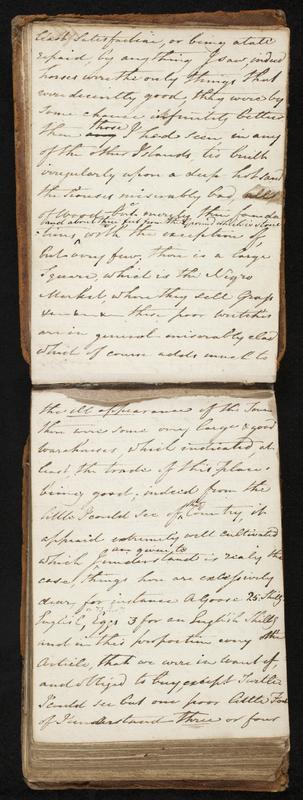 least satisfaction, or being a tale
repaid, by any thing I saw, indeed
horses were the only things that
were decently good, they were by
some chance infinitely better
than those I had seen in any
of the other Islands, tis built
irregularly upon a deep hot sand
the Houses miserably bad, all
of Wood, but every by their founda
raised about two feet from the ground which is of stone
tions, with the exception of,
but very few, there is a large
Square, which is the Negro
Market, where they sell Grass
&c &c &c these poor wretches
are in general miserably clad
which of course adds much to
the ill appearance of the Town
there were some very large & good
warehouses, which indicated at
least the trade of this place
being good; indeed from the
little I could see of the Country, it
appeard extremely well cultivated
which I am given to understand is realy the
case, things here are excessively
dear, for instance A Goose 25 Shillgs
English, Eggs 3 for an English Shillg
and in this proportion every other
Article, that we were in want of,
and obliged to buy, except Turtle
I could see but one poor little Fort
I understand three or four